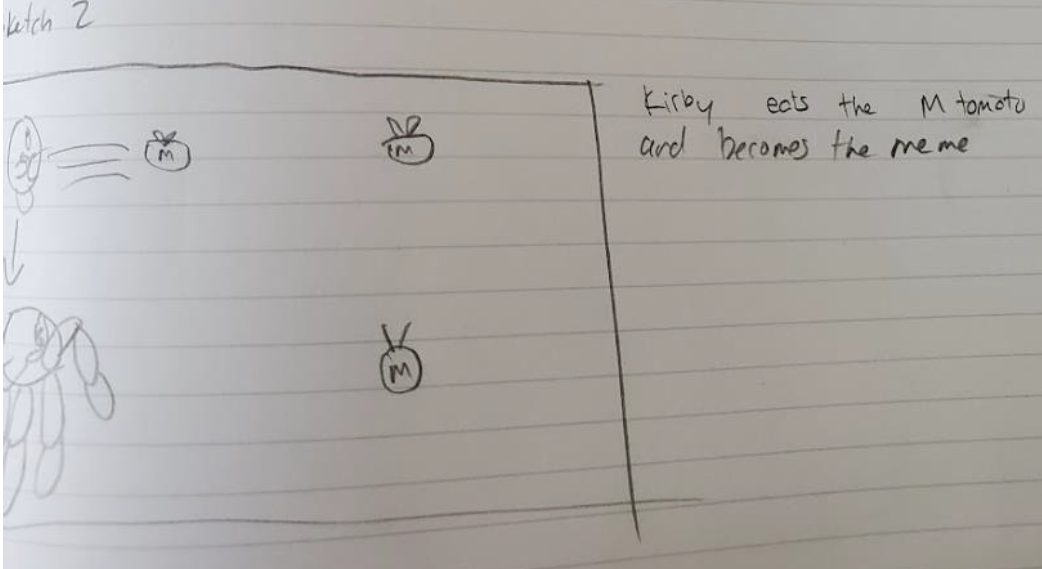 ketch 2
Kirby eats the M tomato
and becomes the meme
M
M
M